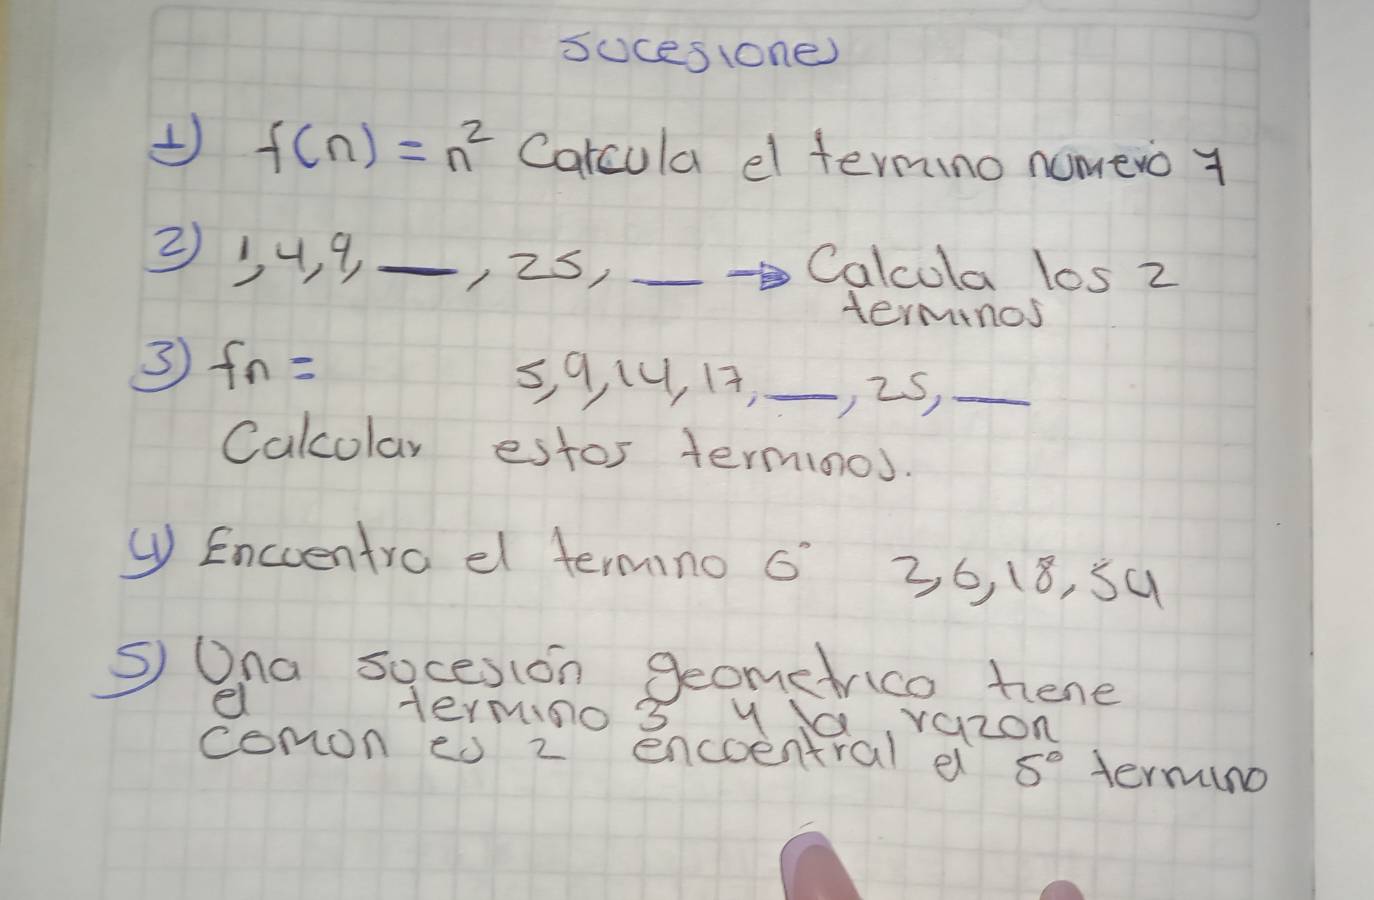 sucesiones
1) f(n) = n² Calcula el termino numero 7
2) 1, 4, 9, __, 25, __ → Calcula los 2
terminos
3) fn = 5, 9, 14, 17, __, 25, __
Calcular estos terminos.
4) Encuentra el termino 6° 2, 6, 18, 54
5) Una sucesión geometrica tiene
el termino 3 y la razon
comon es 2 encoentral el 5° termino